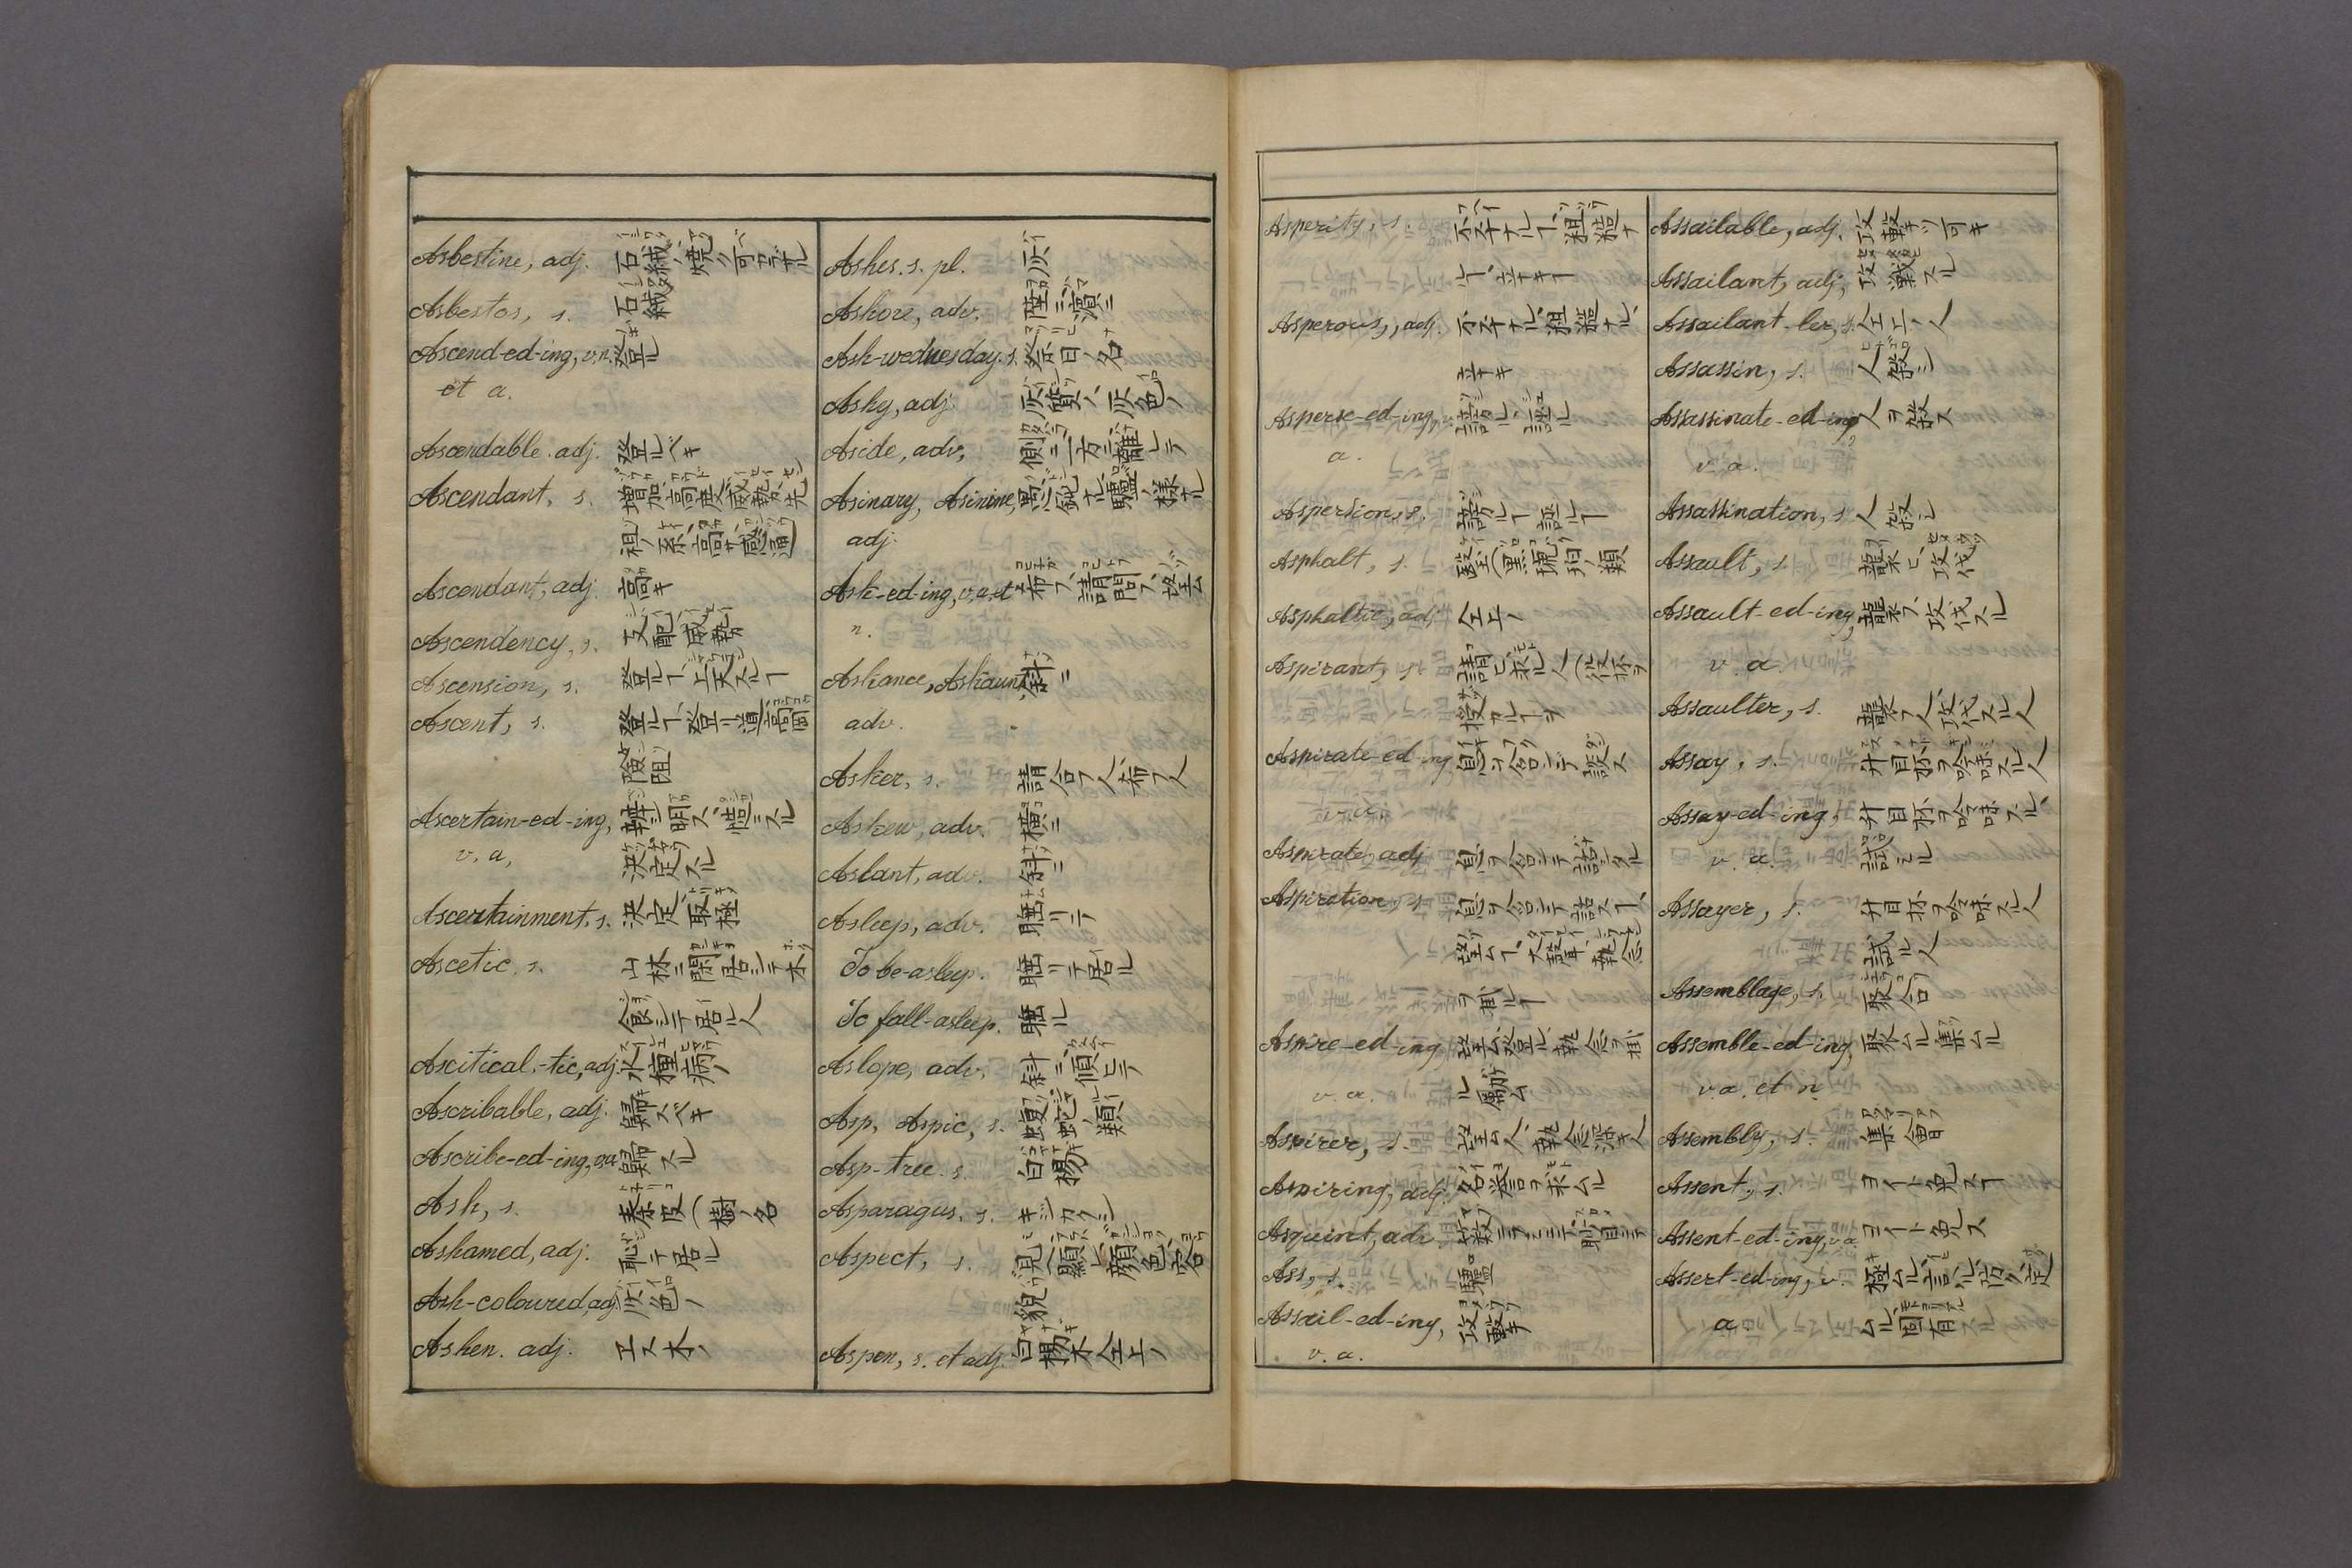 Asbestine, adj. 石絨ノ燒ク可ラザル
Asbestos, s. 石絨
Ascend-ed-ing, v.n. 登ル
et a.
Ascendable. adj. 登ルベキ
Ascendant, s. 増加、高度、威勢、先
祖ノ系、高サ、感通
Ascendant, adj. 高キ
Ascendency, s. 支配、威勢
Ascension, s. 登ルヿ、上天スルヿ
Ascent, s. 登ルヿ、登ル道、高岡
險阻
Ascertain-ed-ing,
v. a, 決定スル
Ascertainment, s. 決定、取極
Ascetic. s. 山林ニ閑居シテ木
食シテ居ル人
Ascitical,-tic, adj. 水腫病ノ
Ascribable, adj. 歸スベキ
Ascribe-ed-ing, v.a. 歸スル
Ash, s. 秦皮(樹ノ名
Ashamed, adj. 恥テ居ル
Ash-coloured, adj. 灰色ノ
Ashen. adj. ヱス木ノ
Ashes. s. pl. 灰
Ashore, adv. 陸ニ、濵ニ
Ash-wednesday. s. 祭日ノ名
Ashy, adj. 灰質ノ、灰色ノ
Aside, adv, 側ニ、一方ニ、離レテ
Asinary, Asinine, 愚鈍ナル、驢ノ樣ナル
adj.
Ask-ed-ing, v.a. et 希フ、請フ、問フ、望ム
n.
Askance, Askaunt 斜ニ
adv.
Asker, s. 請合フ人、希フ人
Askew, adv. 横ニ
Aslant, adv. 斜ニ
Asleep, adv. 睡リテ
To be-asleep. 睡リテ居ル
To fall-asleep. 睡ル
Aslope, adv. 斜ニ、傾ヒテ
Asp, Aspic, s. 蝮蛇ノ類
Asp-tree. s. 白楊
Asparagus. s. キジカクシ
Aspect, s. 見、顯レ、顔色、容
貌
Aspen, s. et adj. 白楊木、仝上ノ
Asperity, s. 不平ナルヿ、粗糙ナ
ルヿ、辛キヿ
Asperous, adj. 不平ナル、粗糙ナル、
辛キ
Asperse-ed-ing, v. 謗ル、誣ル
a.
Aspersion, s. 謗ルヿ、誣ルヿ
Asphalt, s. 黒琥珀ノ類
Asphaltic, adj. 仝上ノ
Aspirant, s. 請ヒ求ル人(役抔ヲ
授カルヿヲ
Aspirate-ed-ing 息ヲ含ンデ談ス
v. a.
Aspirate, adj. 息ヲ含ンデ語ラルル
Aspiration, s. 息ヲ含ンデ語スヿ、
望ムヿ、大譽、執念
ヲ掛ルヿ
Aspire-ed-ing 望ム、登ル、執念ヲ掛
v. a. ル、勵ム
Aspirer, s. 望ム人、執念深キ人
Aspiring, adj. 名譽ヲ求ムル
Asquint, adv.
Ass, s. 驢
Assail-ed-ing, 攻撃ツ
v. a.
Assailable, adj. 攻撃ツ可キ
Assailant, adj, 攻戰スル
Assailant-ler, s. 仝上ノ人
Assassin, s. 人殺シ
Assassinate-ed-ing, 人ヲ殺ス
v. a.
Assassination, s 人殺シ
Assault, s. 襲ヒ、攻伐
Assault-ed-ing, 襲フ、攻伐スル
v. a.
Assaulter, s. 襲フ人、攻伐スル人
Assay, s. 升目抔ヲ吟味スル人
Assay-ed-ing, 升目抔ヲ吟味スル、
v. a. 試ミル
Assayer, s. 升目抔ヲ吟味スル人
試ル人
Assemblage, s. 聚合
Assemble-ed-ing, 聚ムル、集ムル
v. a. et n.
Assembly, s. 集會
Assent, s. ヨイト免スヿ
Assent-ed-ing, v.a. ヨイト免ス
Assert-ed-ing, v. 極ムル、言ヒ
a.